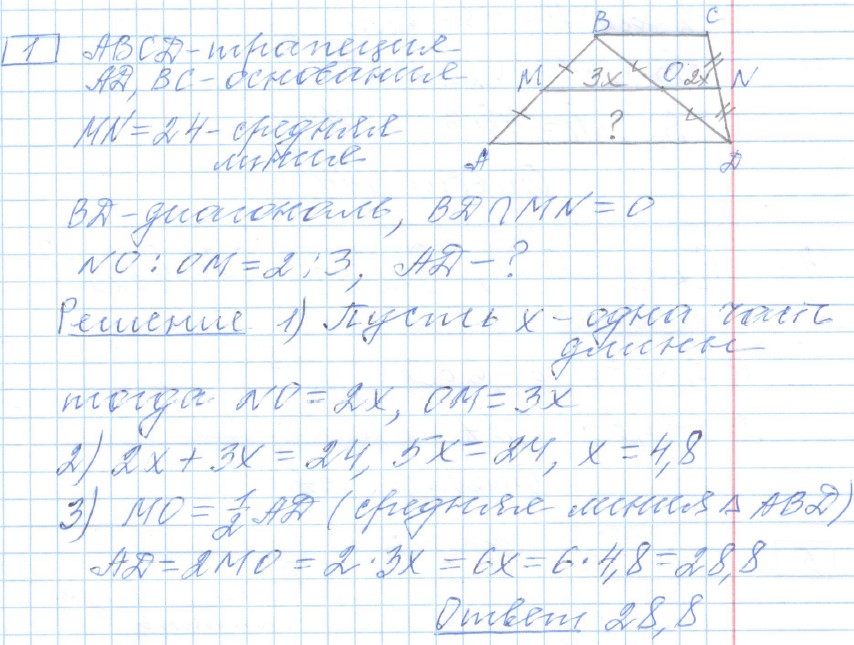 1 ABCD - трапеция
AD, BC - основания
MN = 24 - средняя
линия
B C
M 3x O 2x N
?
A D
BD - диагональ, BD ∩ MN = O
NO : OM = 2 : 3, AD - ?
Решение 1) Пусть x - одна часть
длины
тогда NO = 2x, OM = 3x
2) 2x + 3x = 24, 5x = 24, x = 4,8
3) MO = 1/2 AD (средняя линия △ ABD)
AD = 2MO = 2·3x = 6x = 6·4,8 = 28,8
Ответ 28,8